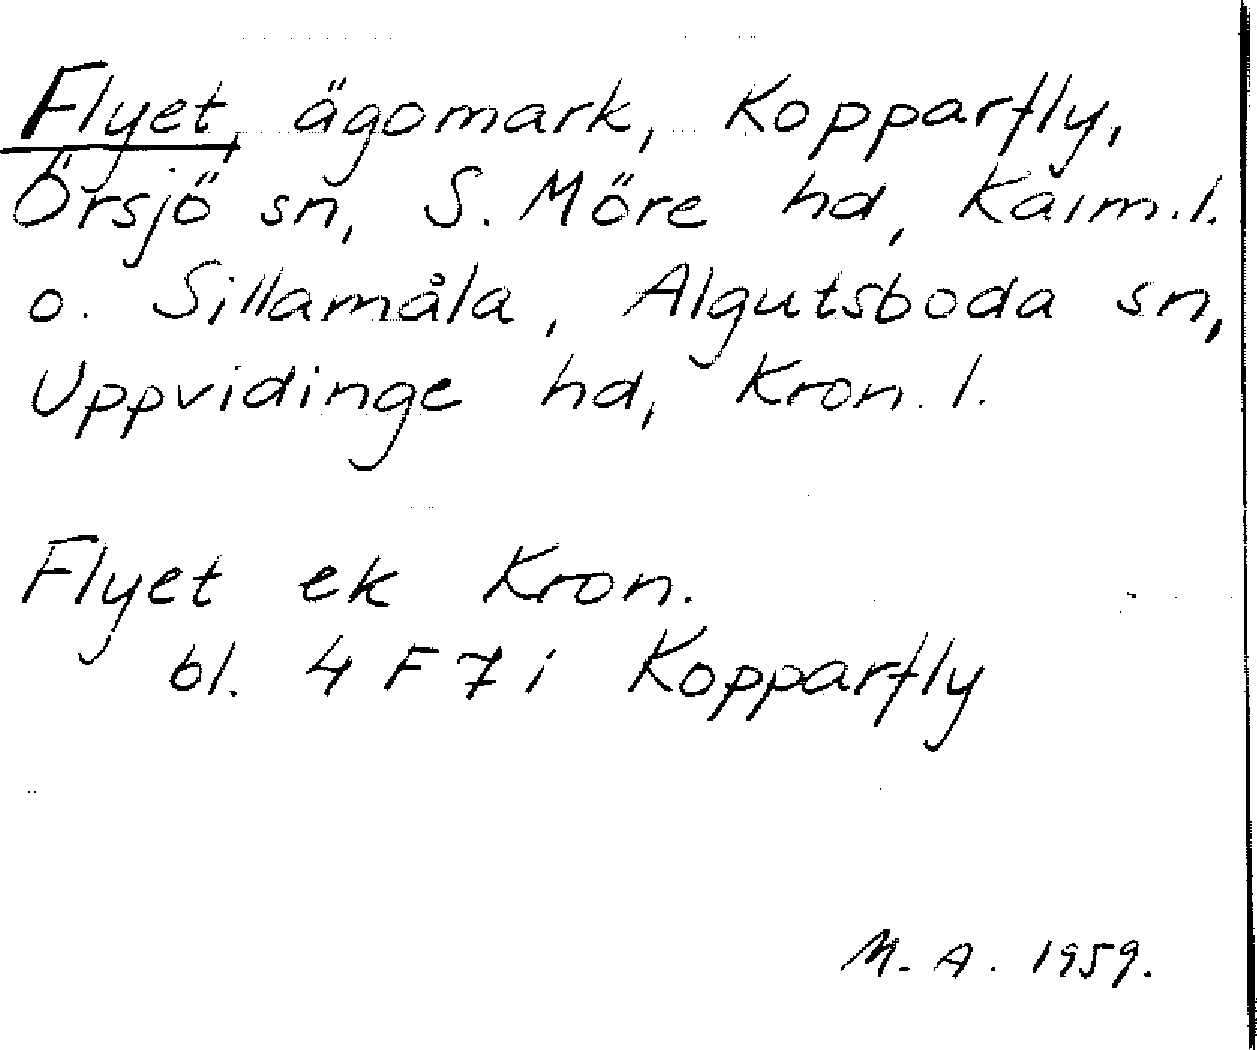 Flyet, ägomark, Kopparfly,
Örsjö sn, S. Möre hd, Kalm. l.
o. Sillamåla, Algutsboda sn,
Uppvidinge hd, Kron. l.
Flyet ek Kron.
bl. 4 F 7 i Kopparfly
M. A. 1959.